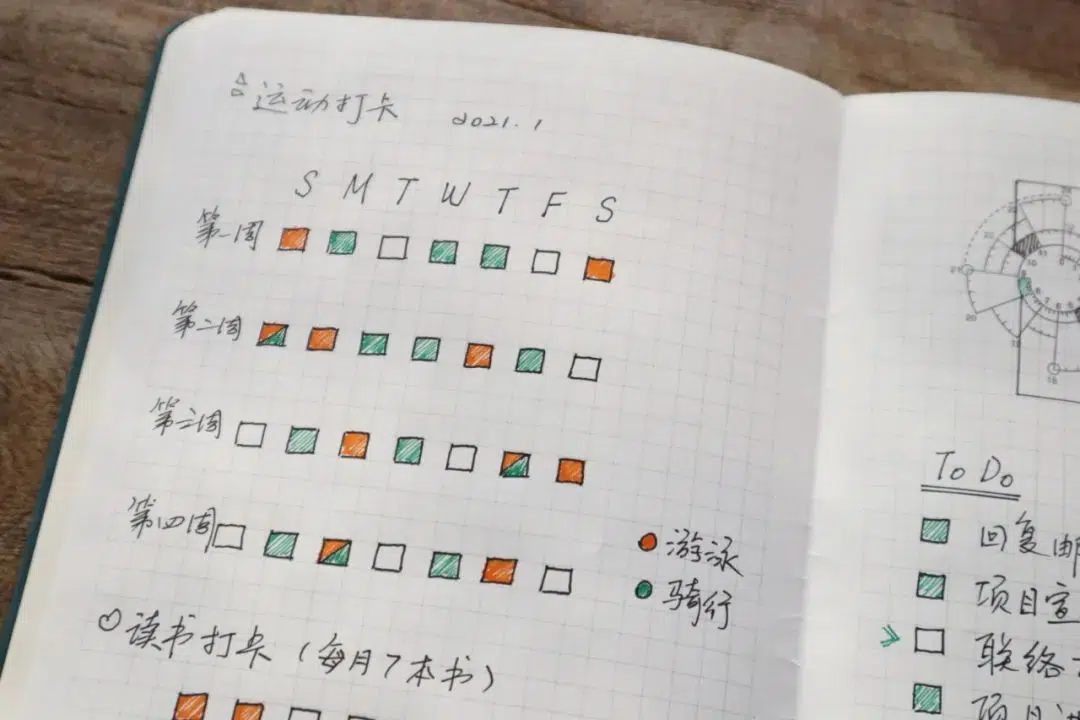 运动打卡 2021.1
S M T W T F S
第一周
第二周
第三周
第四周
游泳
骑行
读书打卡（每月7本书）
To Do
回复邮
项目宣
联络
项目